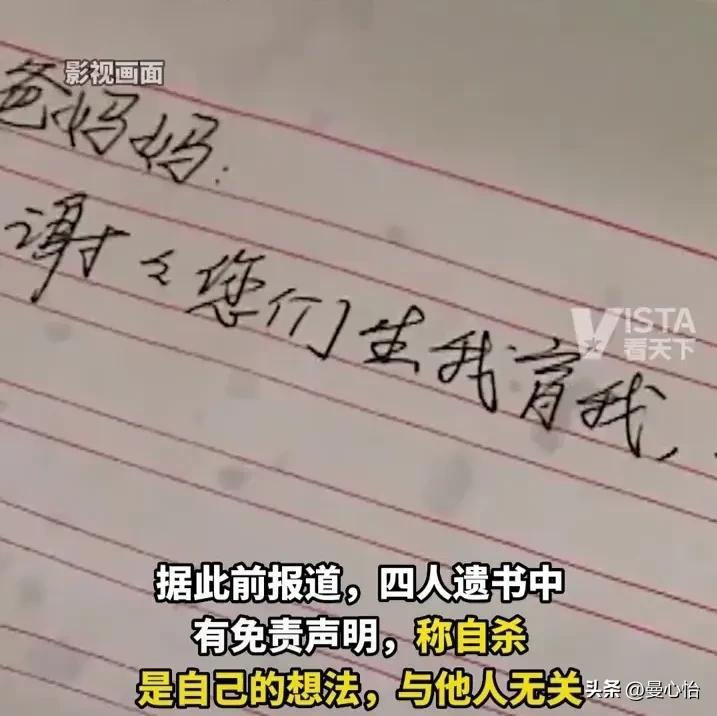 影视画面
爸妈妈:
谢々您们生我育我,
VISTA
看天下
据此前报道，四人遗书中
有免责声明，称自杀
是自己的想法，与他人无关
头条 @曼心怡